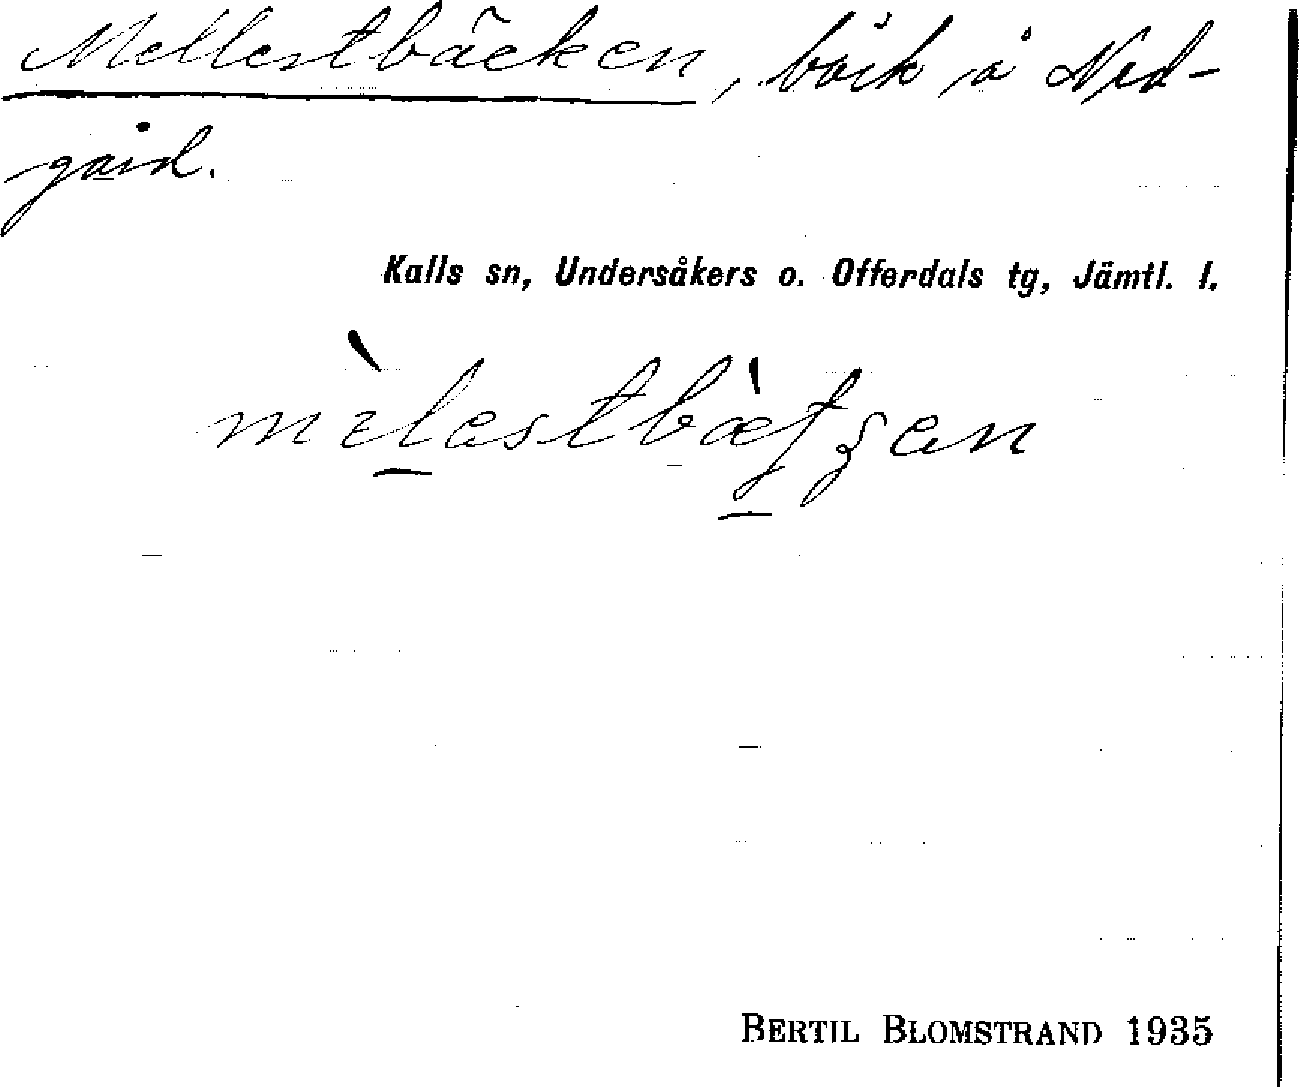 Mellestbäcken, bäck å Ned-
gård.
Kalls sn, Undersåkers o. Offerdals tg, Jämtl. l.
BERTIL BLOMSTRAND 1935